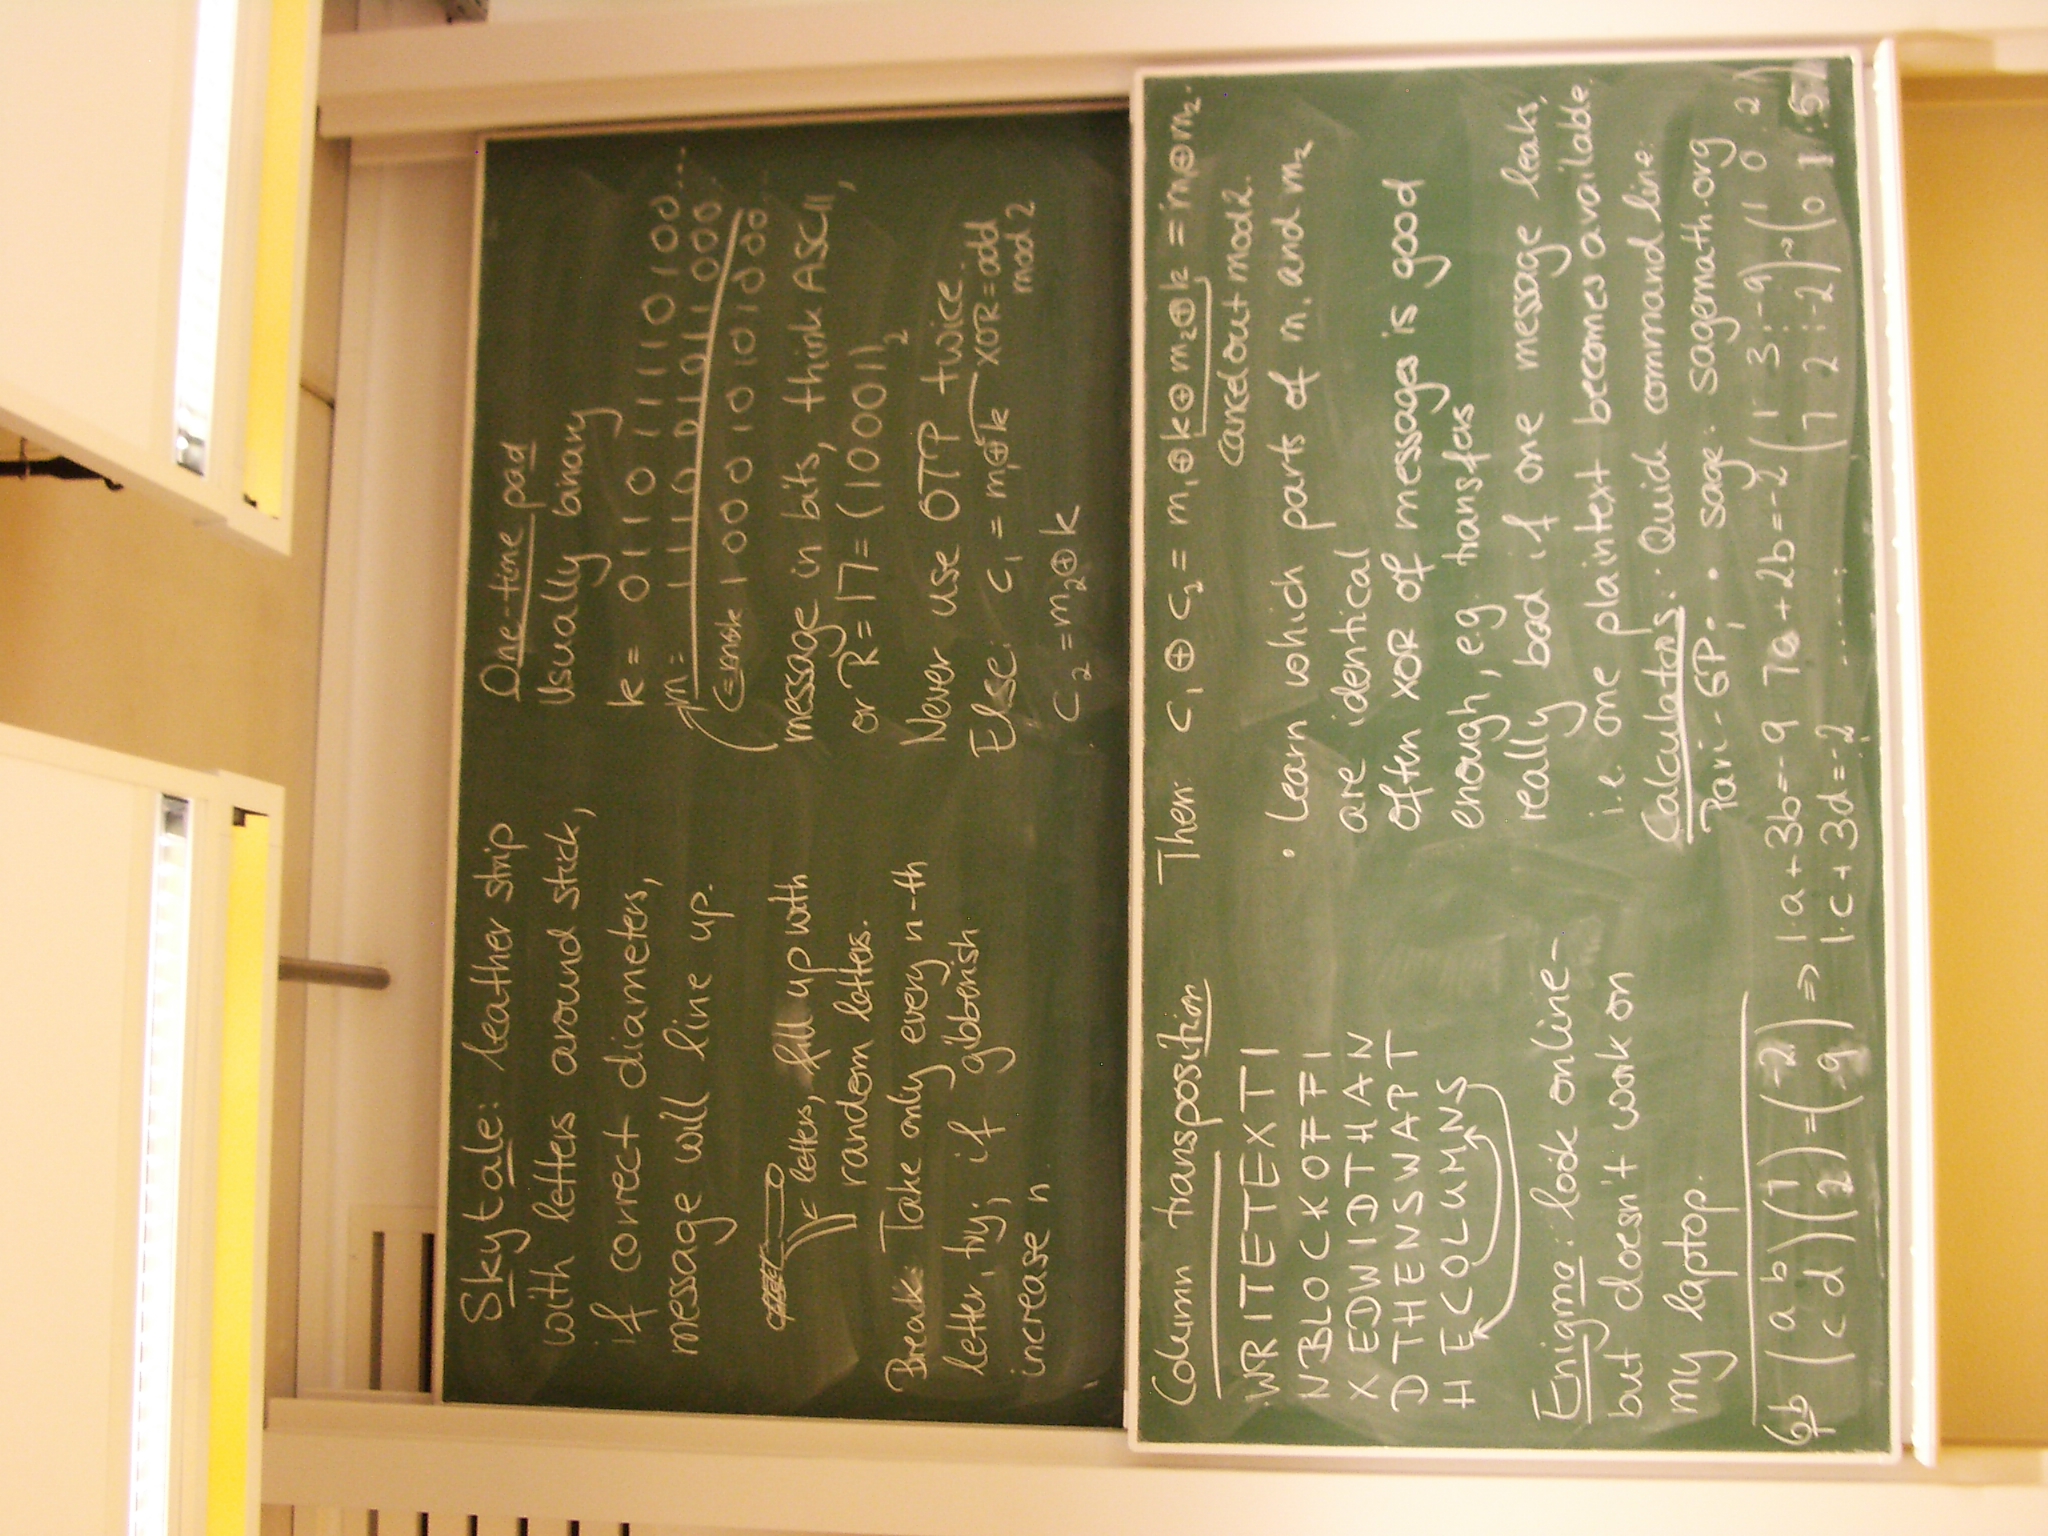 Skytale: leather strip
with letters around stick,
if correct diameters,
message will line up.
letters, fill up with
random letters.
Break: Take only every n-th
letter, try; if gibberish
increase n.
One-time pad
Usually binary
k = 0110 1110100...
m = 1110 0101 1000
c=m⊕k 1000 1010 1000...
message in bits, think ASCII,
or R = 17 = (10001)₂
Never use OTP twice.
Else: c₁ = m₁⊕k XOR = add
mod 2
c₂ = m₂⊕k
Column transposition
WRITETEXTI
NBLOCKOFFI
XEDWIDTHAN
DTHENSWAPT
HECOLUMNS
Enigma: look online-
but doesn't work on
my laptop.
Then: c₁ ⊕ c₂ = m₁⊕k⊕m₂⊕k = m₁⊕m₂.
cancel out mod 2.
• Learn which parts of m₁ and m₂
are identical
Often XOR of messages is good
enough, e.g. transfers
really bad if one message leaks,
i.e. one plaintext becomes available
Calculators: Quick command line:
Pari-GP; • sage: sagemath.org
6b (a b)(1 7) = (-2) ⇒ 1·a + 3b = -9 7a + 2b = -2 (1 3 : -9) (1 0 : 2)
(c d)(2) = (-9) 1·c + 3d = -2 .... (7 2 : -2) → (0 1 : 5)